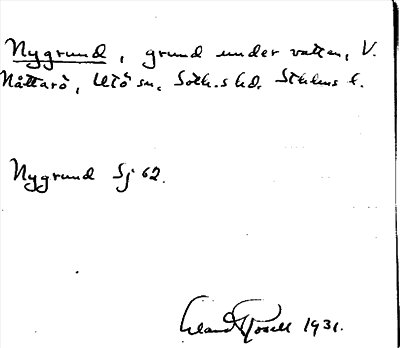 Nygrund, grund under vatten, V.
Nåttarö, Utö sn, Soth.s hd. Sthlms l.
Nygrund Sj 62.
Erland Rosell 1931.